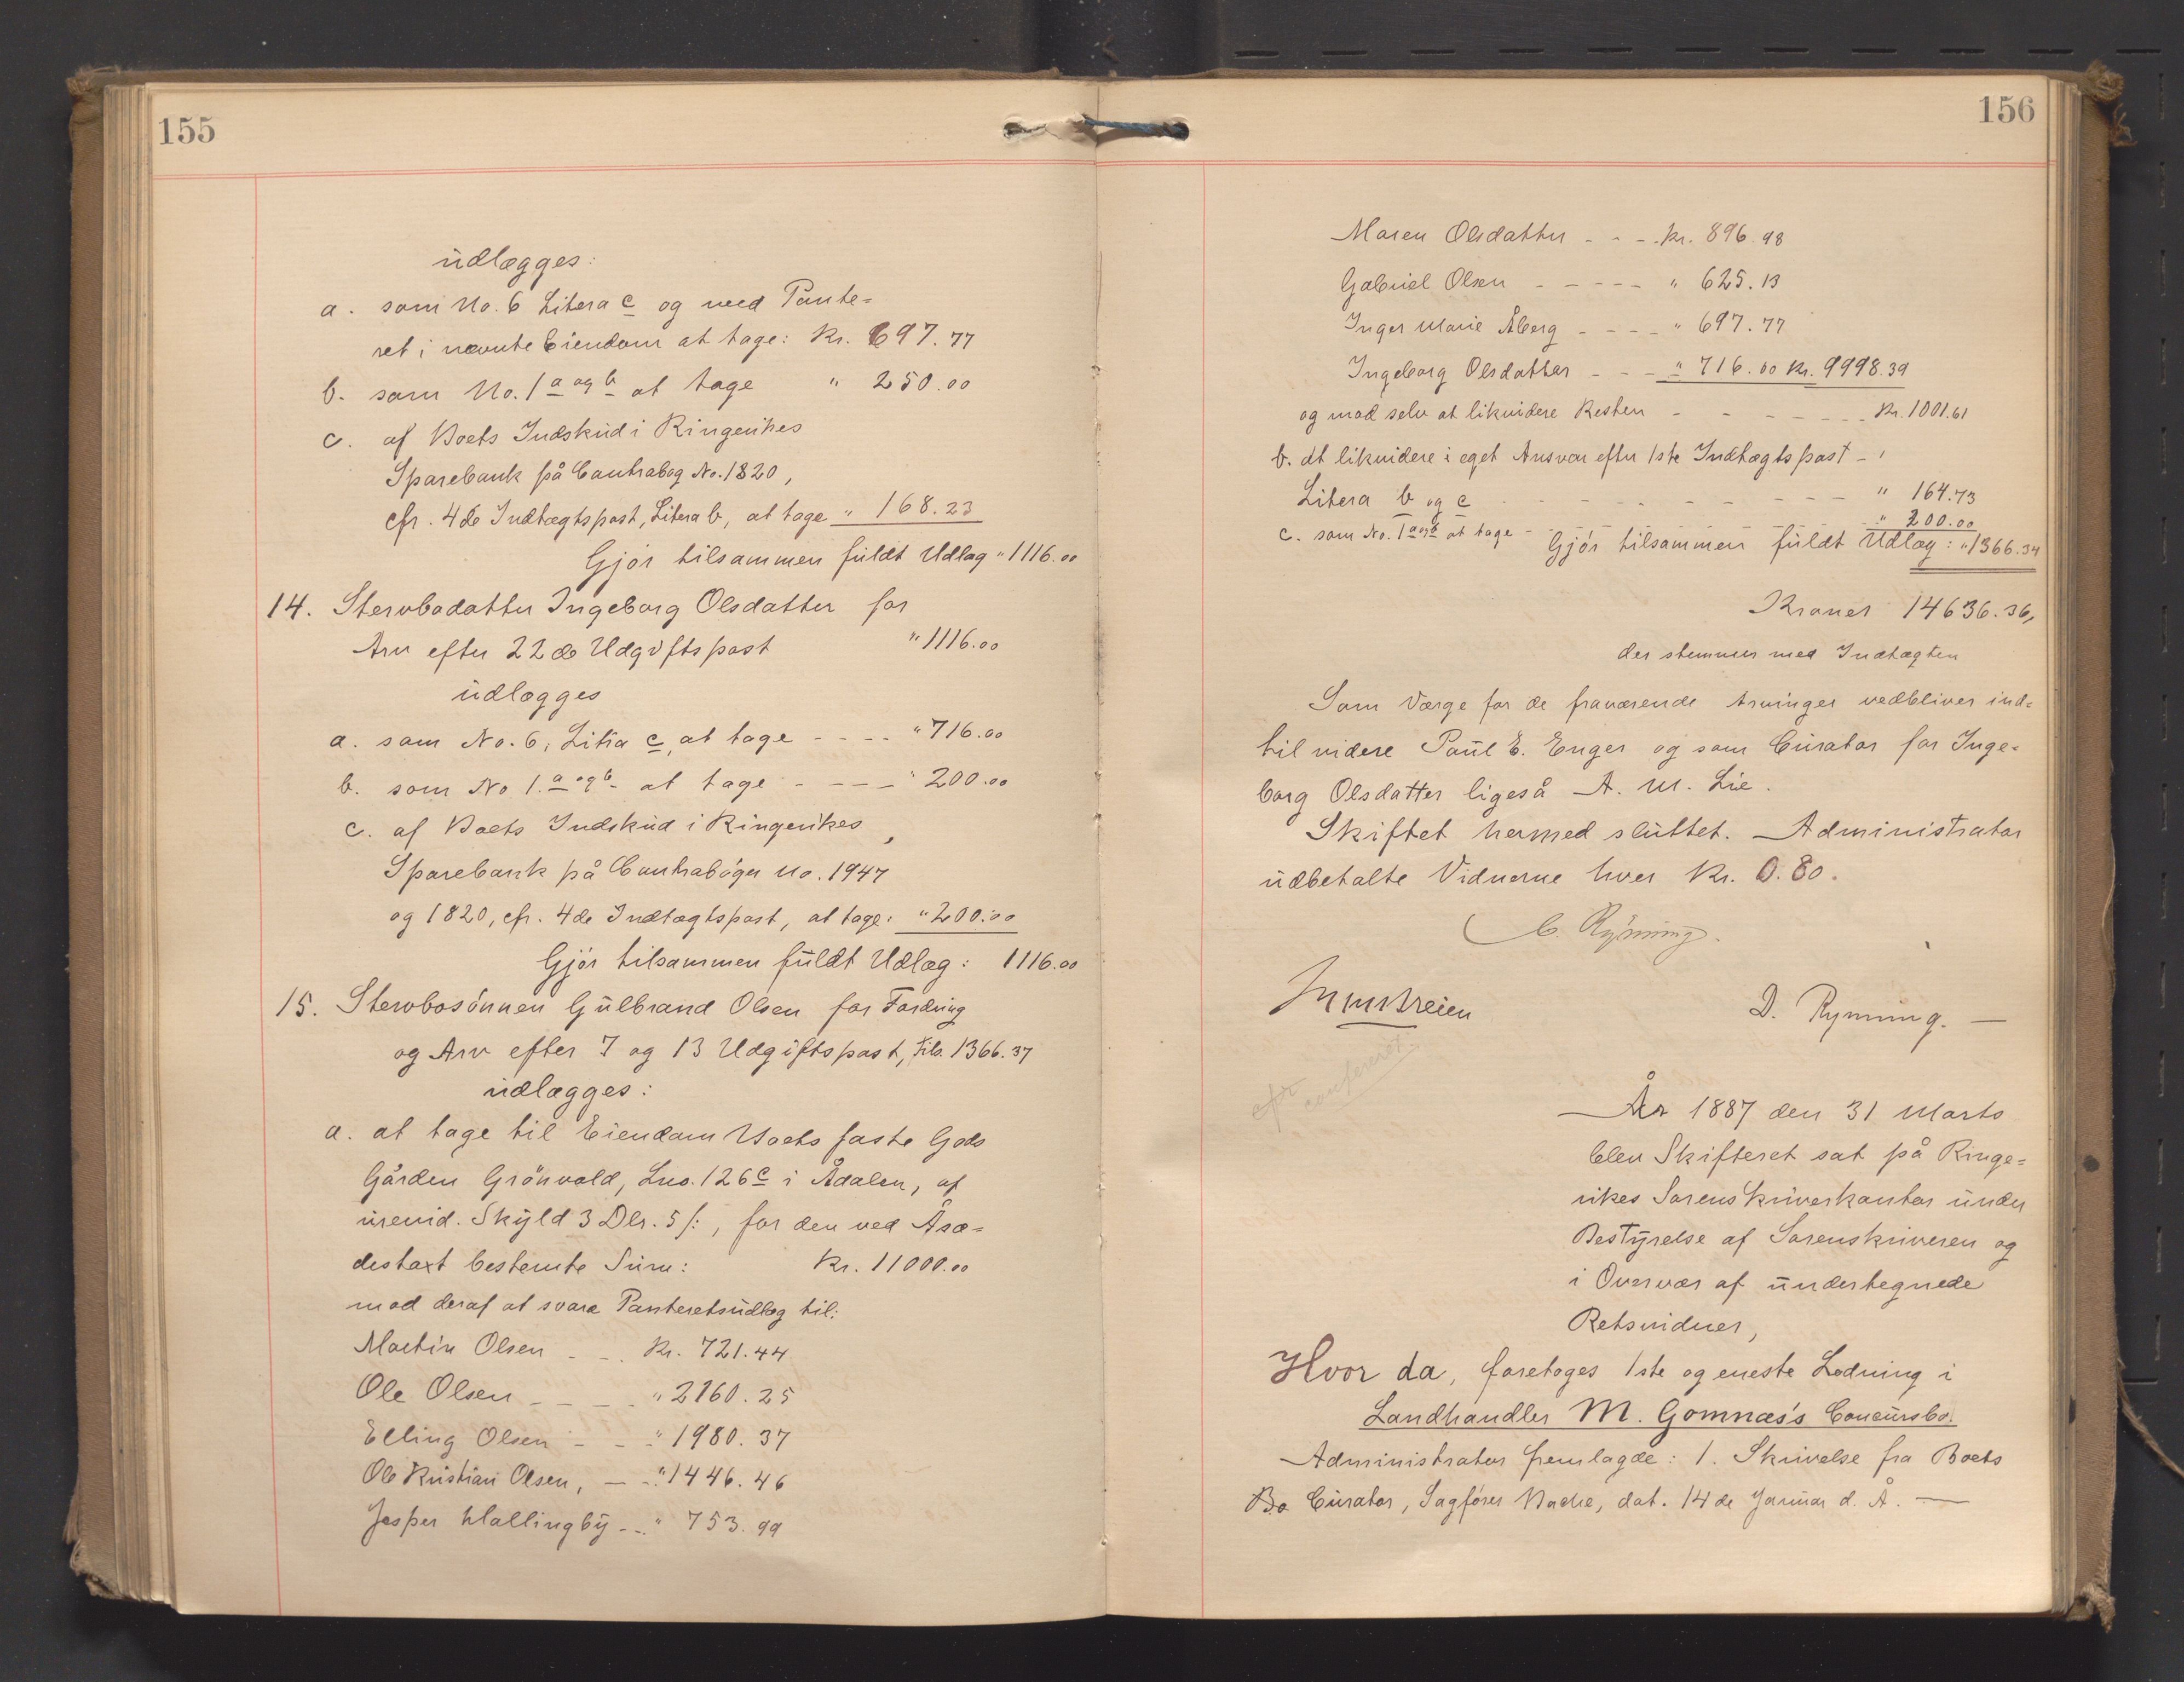 155
udlægges:
a. som No. 6 Litera c og med Pante=
ret i nævnte Eiendom at tage: Kr. 697.77
b. som No. 1 a og b at tage " 250.00
c. af Boets Indskud i Ringerikes
Sparebank på Contrabog No. 1820,
cfr. 4de Indtægtspost, Litera b, at tage " 168.23
Gjør tilsammen fuldt Udlæg " 1116.00
14. Stervbodatter Ingeborg Olsdatter for
Arv efter 22de Udgiftspost " 1116.00
udlægges
a. som No. 6, Litra c, at tage - - - - " 716.00
b. som No 1. a og b at tage - - - - " 200.00
c. af Boets Indskud i Ringerikes,
Sparebank på Contrabøger No. 1947
og 1820, cfr. 4de Indtægtspost, at tage: " 200.00
Gjør tilsammen fuldt Udlæg: 1116.00
15. Stervbosønnen Gulbrand Olsen for Fordring
og Arv efter 7 og 13 Udgiftspost, tils. 1366.37
udlægges:
a. at tage til Eiendom Boets faste Gods
Gården Grönvold, Lno. 126 c i Ådalen, af
urevid. Skyld 3 Dlr. 5 /:, for den ved Åsæ=
destaxt bestemte Sum: Kr. 11000.00
mod deraf at svare Panteretsudlæg til:
Martin Olsen - - - Kr. 721.44
Ole Olsen - - - - " 2160.25
Elling Olsen - - - " 1980.37
Ole Kristian Olsen, - - " 1446.46
Jesper Hallingby - - " 753.99
156
Maren Olsdatter - - - Kr. 896.98
Gabriel Olsen - - - - - " 625.13
Inger Marie Åberg - - - - " 697.77
Ingeborg Olsdatter - - - " 716.00 Kr. 9998.39
og mod selv at likvidere Resten - - - - - - Kr. 1001.61
b. At likvidere i eget Ansvar efter 1ste Indtægtspost -
Litera b og c - - - - - - - - - " 164.73
c. som No. 1 a og b at tage - - - - - - - - " 200.00
Gjør tilsammen fuldt Udlæg: " 1366.34
Kroner 14636.36,
der stemmer med Indtægten
Som Værge for de fraværende Arvinger vedbliver ind=
til videre Paul E. Enger og som Curator for Inge=
borg Olsdatter ligeså A. M. Lie.
Skiftet hermed sluttet. Administrator
udbetalte Vidnerne hver Kr. 0.80.
C. Rynning.
D. Rynning. —
cfr
confereret.
År 1887 den 31 Marts
blev Skifteret sat på Ringe=
rikes Sorenskriverkontor under
Bestyrelse af Sorenskriveren og
i Overvær af undertegnede
Retsvidner,
Hvor da, foretoges 1ste og eneste Lodning i
Landhandler M. Gomnæs's Concursbo.
Administrator fremlagde: 1. Skrivelse fra Boets
Bo Curator, Sagfører Bache, dat. 14de Januar d. Å. —